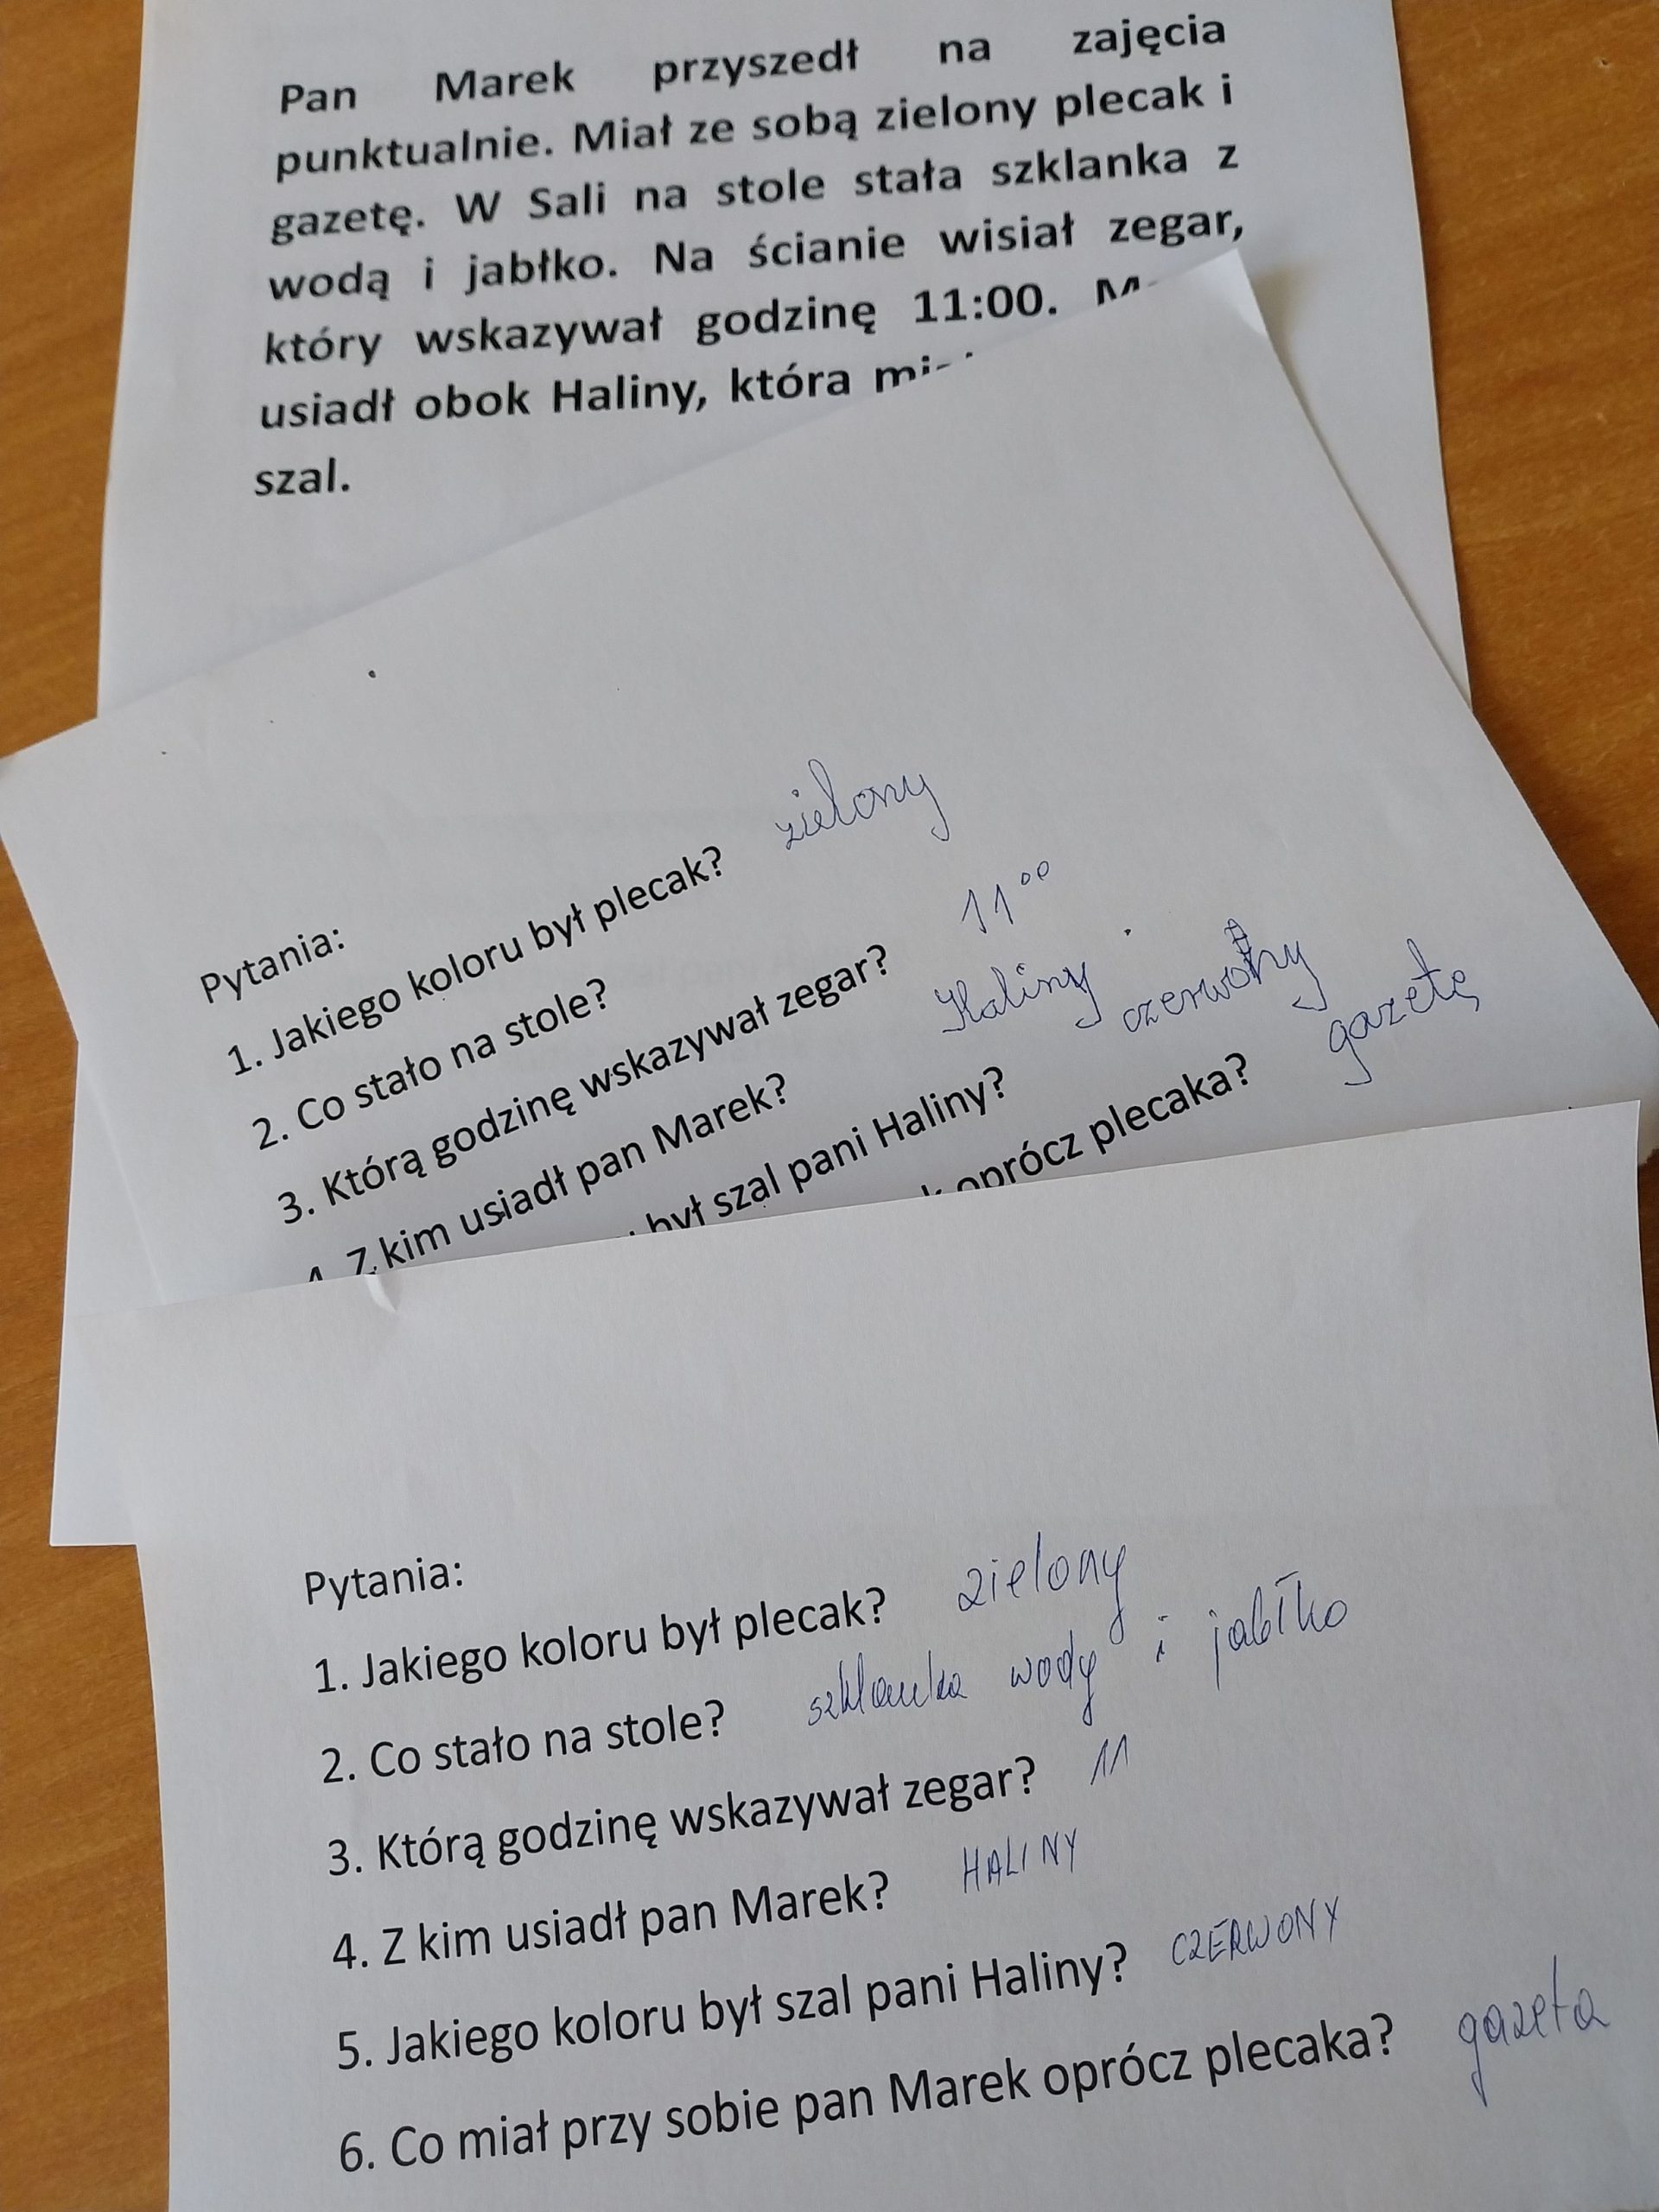 Pan Marek przyszedł na zajęcia
punktualnie. Miał ze sobą zielony plecak i
gazetę. W Sali na stole stała szklanka z
wodą i jabłko. Na ścianie wisiał zegar,
który wskazywał godzinę 11:00.
usiadł obok Haliny, która
szal.
Pytania:
1. Jakiego koloru był plecak? zielony
2. Co stało na stole?
3. Którą godzinę wskazywał zegar? 11⁰⁰
4. Z kim usiadł pan Marek? Haliny
był szal pani Haliny? czerwony
oprócz plecaka? gazetę
Pytania:
1. Jakiego koloru był plecak? zielony
2. Co stało na stole? szklanka wody i jabłko
3. Którą godzinę wskazywał zegar? 11
4. Z kim usiadł pan Marek? HALINY
5. Jakiego koloru był szal pani Haliny? CZERWONY
6. Co miał przy sobie pan Marek oprócz plecaka? gazeta